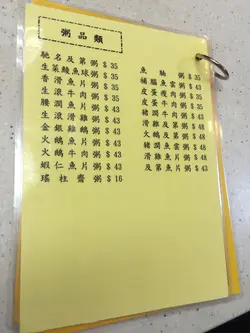 粥品類
馳名及第粥 $ 35
生菜鯪魚球粥 $ 35
香滑魚片粥 $ 35
生滾牛肉粥 $ 35
腰潤魚片粥 $ 43
生滾滑雞粥 $ 43
金銀雞鵪粥 $ 43
火鵪魚片粥 $ 43
火鵪牛肉粥 $ 43
蝦仁魚片粥 $ 43
瑤柱齋粥 $ 16
魚 粥 $ 35
豬腦魚雲粥 $ 43
皮蛋瘦肉粥 $ 35
皮蛋牛肉粥 $ 35
腰潤牛肉粥 $ 43
滑雞魚片粥 $ 48
滑雞及第粥 $ 48
豬潤魚雲粥 $ 48
滑潤魚片粥 $ 43
及第魚片粥 $ 43